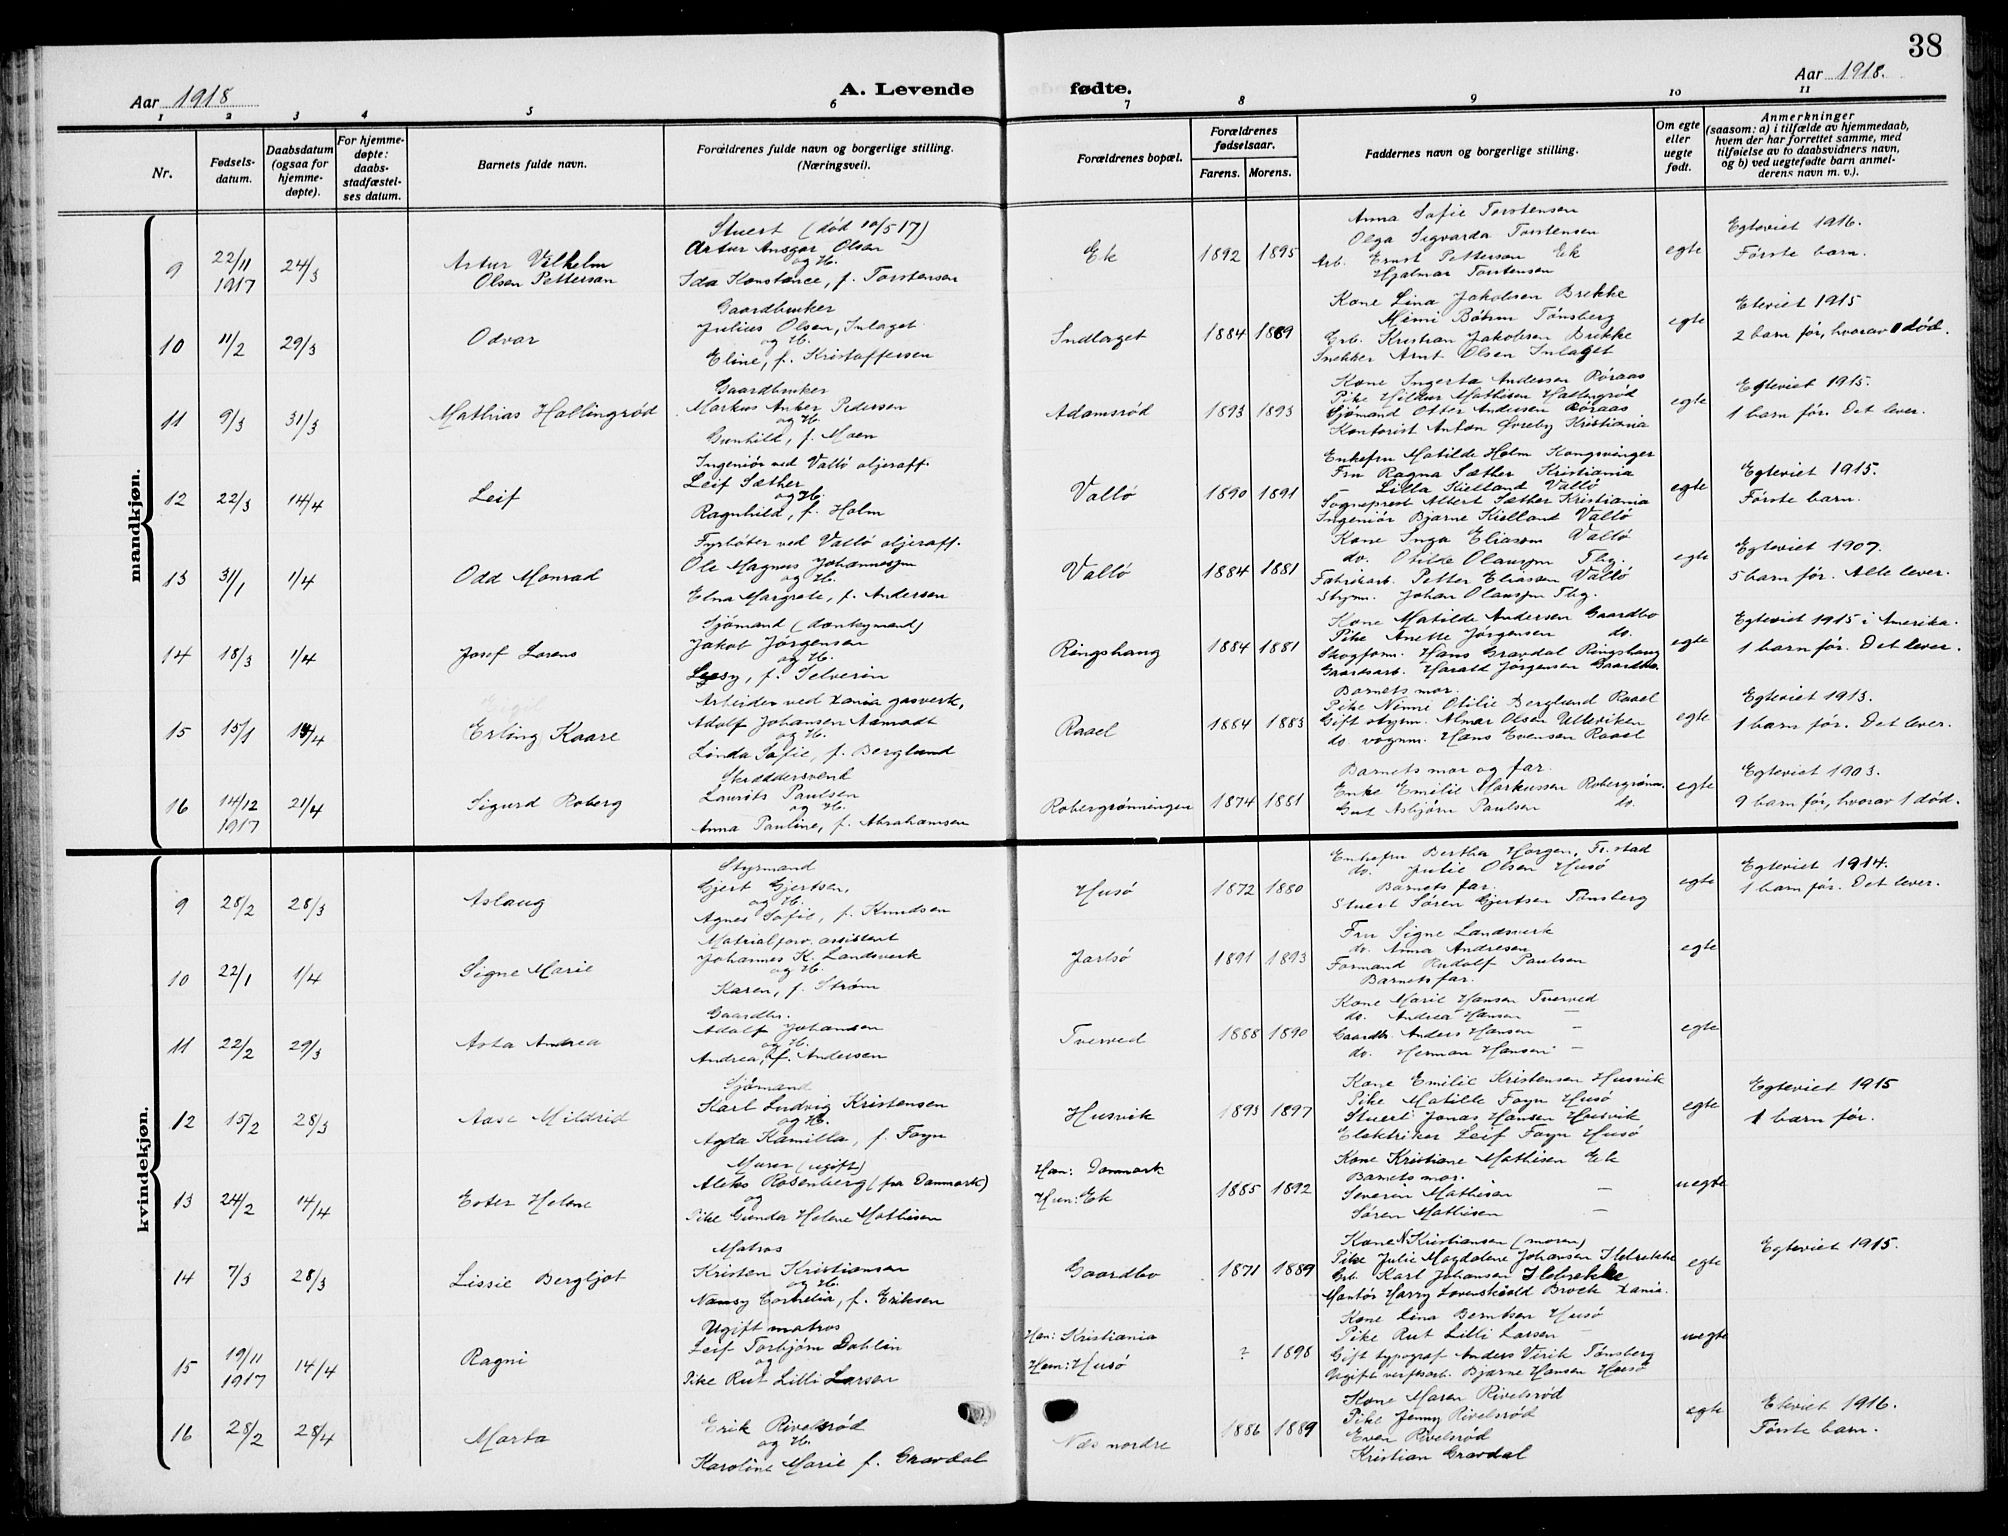 38
Aar 1918
A. Levende fødte.
Aar 1918.
1 2 3 4 5 6 7 8 9 10 11
Nr.
Fødsels-
datum.
Daabsdatum
(ogsaa for
hjemme-
døpte).
For hjemme-
døpte:
daabs-
stadfæstel-
ses datum.
Barnets fulde navn.
Forældrenes fulde navn og borgerlige stilling.
(Næringsvei).
Forældrenes bopæl.
Forældrenes
fødselsaar.
Farens. Morens.
Faddernes navn og borgerlige stilling.
Om egte
eller
uegte
født.
Anmerkninger
(saasom: a) i tilfælde av hjemmedaab,
hvem der har forrettet samme, med
tilføielse av to daabsvidners navn,
og b) ved uegtefødte barn anmel-
derens navn m. v.).
mandkjøn.
9
22/11
1917
24/3
Artur Vilhelm
Olsen Pettersen
Stuert (død 10/5 17)
Artur Ansgar Olsen
og H.
Ida Konstance, f. Torstensen
Ek
1892 1895
Anna Sofie Torstensen
Olga Sigvarda Torstensen
Arb. Ernst Pettersen Ek
Hjalmar Torstensen
egte
Egteviet 1916.
Første barn.
10
11/2
29/3
Odvar
Gaardbruker
Julius Olsen, Inlaget
og H.
Eline, f. Kristoffersen
Indlaget
1884 1889
Kone Lina Jakobsen Brekke
Mimi Bøhm Tønsberg
Grb. Kristian Jakobsen Brekke
Snekker Arnt Olsen Inlaget
egte
Eteviet 1915
2 barn før, hvorav 1 død.
11
9/3
31/3
Mathias Hallingrød
Gaardbruker
Markus Anker Pedersen
og H.
Gunhild, f. Moen
Adamsrød
1893 1893
Kone Ingerta Andersen Røraas
Pike Hildur Mathisen Hallingrød
Sjømand Otter Andersen Røraas
Kontorist Anton Øvreby Kristiania
egte
Egteviet 1915.
1 barn før. Det lever.
12
22/3
14/4
Leif
Ingeniør ved Vallø oljeraff.
Leif Sæther
og H.
Ragnhild, f. Holm
Vallø
1890 1891
Enkefru Matilde Holm Kongsvinger
Fru Ragna Sæther Kristiania
— Lilla Kielland Vallø
Sogneprest Albert Sæther Kristiania
Ingeniør Bjarne Kielland Vallø
egte
Egteviet 1915.
Første barn.
13
31/1
1/4
Odd Monrad
Fyrbøter ved Vallø oljeraff.
Ole Magnus Johannessen
og H.
Elna Margrete, f. Andersen
Vallø
1884 1881
Kone Inga Eliassen Vallø
do. Otilde Olaussen Tbg.
Fabrikarb. Petter Eliassen Vallø
Stym. Johan Olaussen Tbg.
egte
Egteviet 1907.
5 barn før. Alle lever.
14
18/3
1/4
Josef Lorens
Sjømand (donkymand)
Jakob Jørgensen
og H.
f. Selverin
Ringshaug
1884 1881
Kone Matilde Andersen Gaardbo
Pike Anette Jørgensen do.
Skogfom. Hans Gravdal Ringshaug
Gaardsarb. Harald Jørgensen Gaardbo
egte
Egteviet 1915 i Amerika.
1 barn før. Det lever.
15
15/1
14/4
Erling Kaare
Arbeider ved Xania gasverk,
Adolf Johansen Aamodt
og H.
Linda Sofie, f. Berglund
Raael
1884 1883
Barnets mor.
Pike Nimi Otilie Berglund Raael
Gift stym. Almar Olsen Ulleviken
do. vognm. Hans Evensen Raael
egte
Egteviet 1913.
1 barn før. Det lever.
16
14/12
1917
21/4
Sigurd Roberg
Skræddersvend
Laurits Paulsen
og H.
Anna Pauline, f. Abrahamsen
Robergrønningen
1874 1881
Barnets mor og far.
Enke Emilie Markussen Robergrønn.
Gut Asbjørn Paulsen do.
egte
Egteviet 1903.
9 barn før, hvorav 1 død.
kvindekjøn.
9
28/2
28/3
Aslaug
Styrmand
Gjert Gjertsen,
og H.
Agnes Sofie, f. Knudsen
Husø
1872 1880
Enkefru Bertha Horgen, Fr.stad
do. Julie Olsen Husø
Barnets far.
Stuert Søren Gjertsen Tønsberg
egte
Egteviet 1914.
1 barn før. Det lever.
10
22/1
1/4
Signe Marie
Matrialforv. assistent
Johannes K. Landsverk
og H.
Karen, f. Strøm
Jarlsø
1891 1893
Fru Signe Landsverk
do. Anna Andresen
Formand Rudolf Paulsen
Barnets far.
egte
11
22/2
29/3
Asta Andrea
Gaardbr.
Adolf Johansen
og H.
Andrea, f. Andersen
Tverved
1888 1890
Kone Marie Hansen Tverved
do. Andrea Hansen —
Gaardb. Anders Hansen —
do. Herman Hansen —
egte
12
15/2
28/3
Aase Mildrid
Sjømand
Karl Ludvig Kristensen
og H.
Agda Kamilla, f. Foyn
Husvik
1893 1897
Kone Emilie Kristensen Husvik
Pike Matille Foyn Husø
Stuert Jonas Hansen Husvik
Elektriker Leif Foyn Husø
egte
Egteviet 1915
1 barn før.
13
24/2
14/4
Ester Helene
Murer (ugift)
Aleks Rosenberg (fra Danmark)
og
Pike Gunda Helene Mathisen
Han: Danmark
Hun: Ek
1885 1892
Kone Kristiane Mathisen Ek
Barnets mor.
Severin Mathisen —
Søren Mathisen —
uegte
14
7/3
28/3
Lissie Bergljot
Matros
Kristen Kristiansen
og H.
Nansy Cornelia, f. Eriksen
Gaardbo
1871 1889
Kone N. Kristiansen (moren)
Pike Julie Magdalene Johansen Ilebrekke
Grb. Karl Johansen Ilebrekke
Montør Harry Lovenskiold Broch Xania.
egte
Egteviet 1915.
15
19/11
1917
14/4
Ragni
Ugift matros
Leif Torbjørn Dahlin
og
Pike Rut Lilli Larsen
Han: Kristiania
Hun: Husø
? 1898
Kone Lina Berntsen Husø
Pike Rut Lilli Larsen —
Gift typograf Anders Virik Tønsberg
Ugift verftsarb. Bjarne Hansen Husø
uegte
16
28/2
28/4
Marta
Erik Rivelsrød
og H.
Karoline Marie f. Gravdal
Næs nordre
1886 1889
Kone Maren Rivelsrød
Pike Jenny Rivelsrød
Even Rivelsrød
Kristian Gravdal
egte
Eteviet 1916.
Første barn.